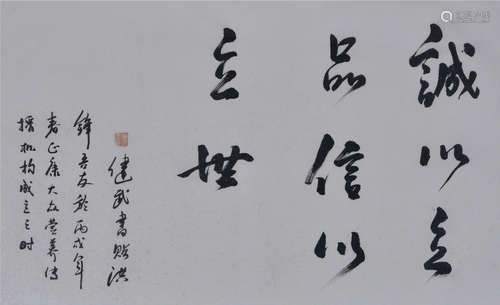 誠以立
品信以
立世
健武書贈洪
鋒吾友於丙戌年
春正康大众营养传
播机构成立之时